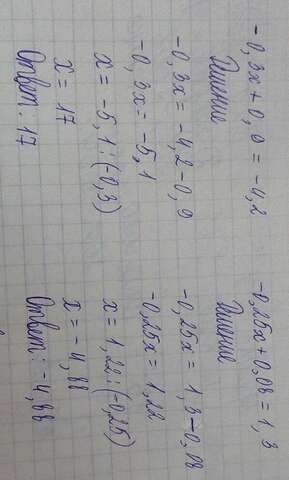 -0,3x + 0,9 = -4,2
Решение
-0,3x = -4,2-0,9
-0,3x = -5,1
x = -5,1:(-0,3)
x = 17
Ответ: 17
-0,25x + 0,08 = 1,3
Решение
-0,25x = 1,3-0,08
-0,25x = 1,22
x = 1,22:(-0,25)
x = -4,88
Ответ: -4,88